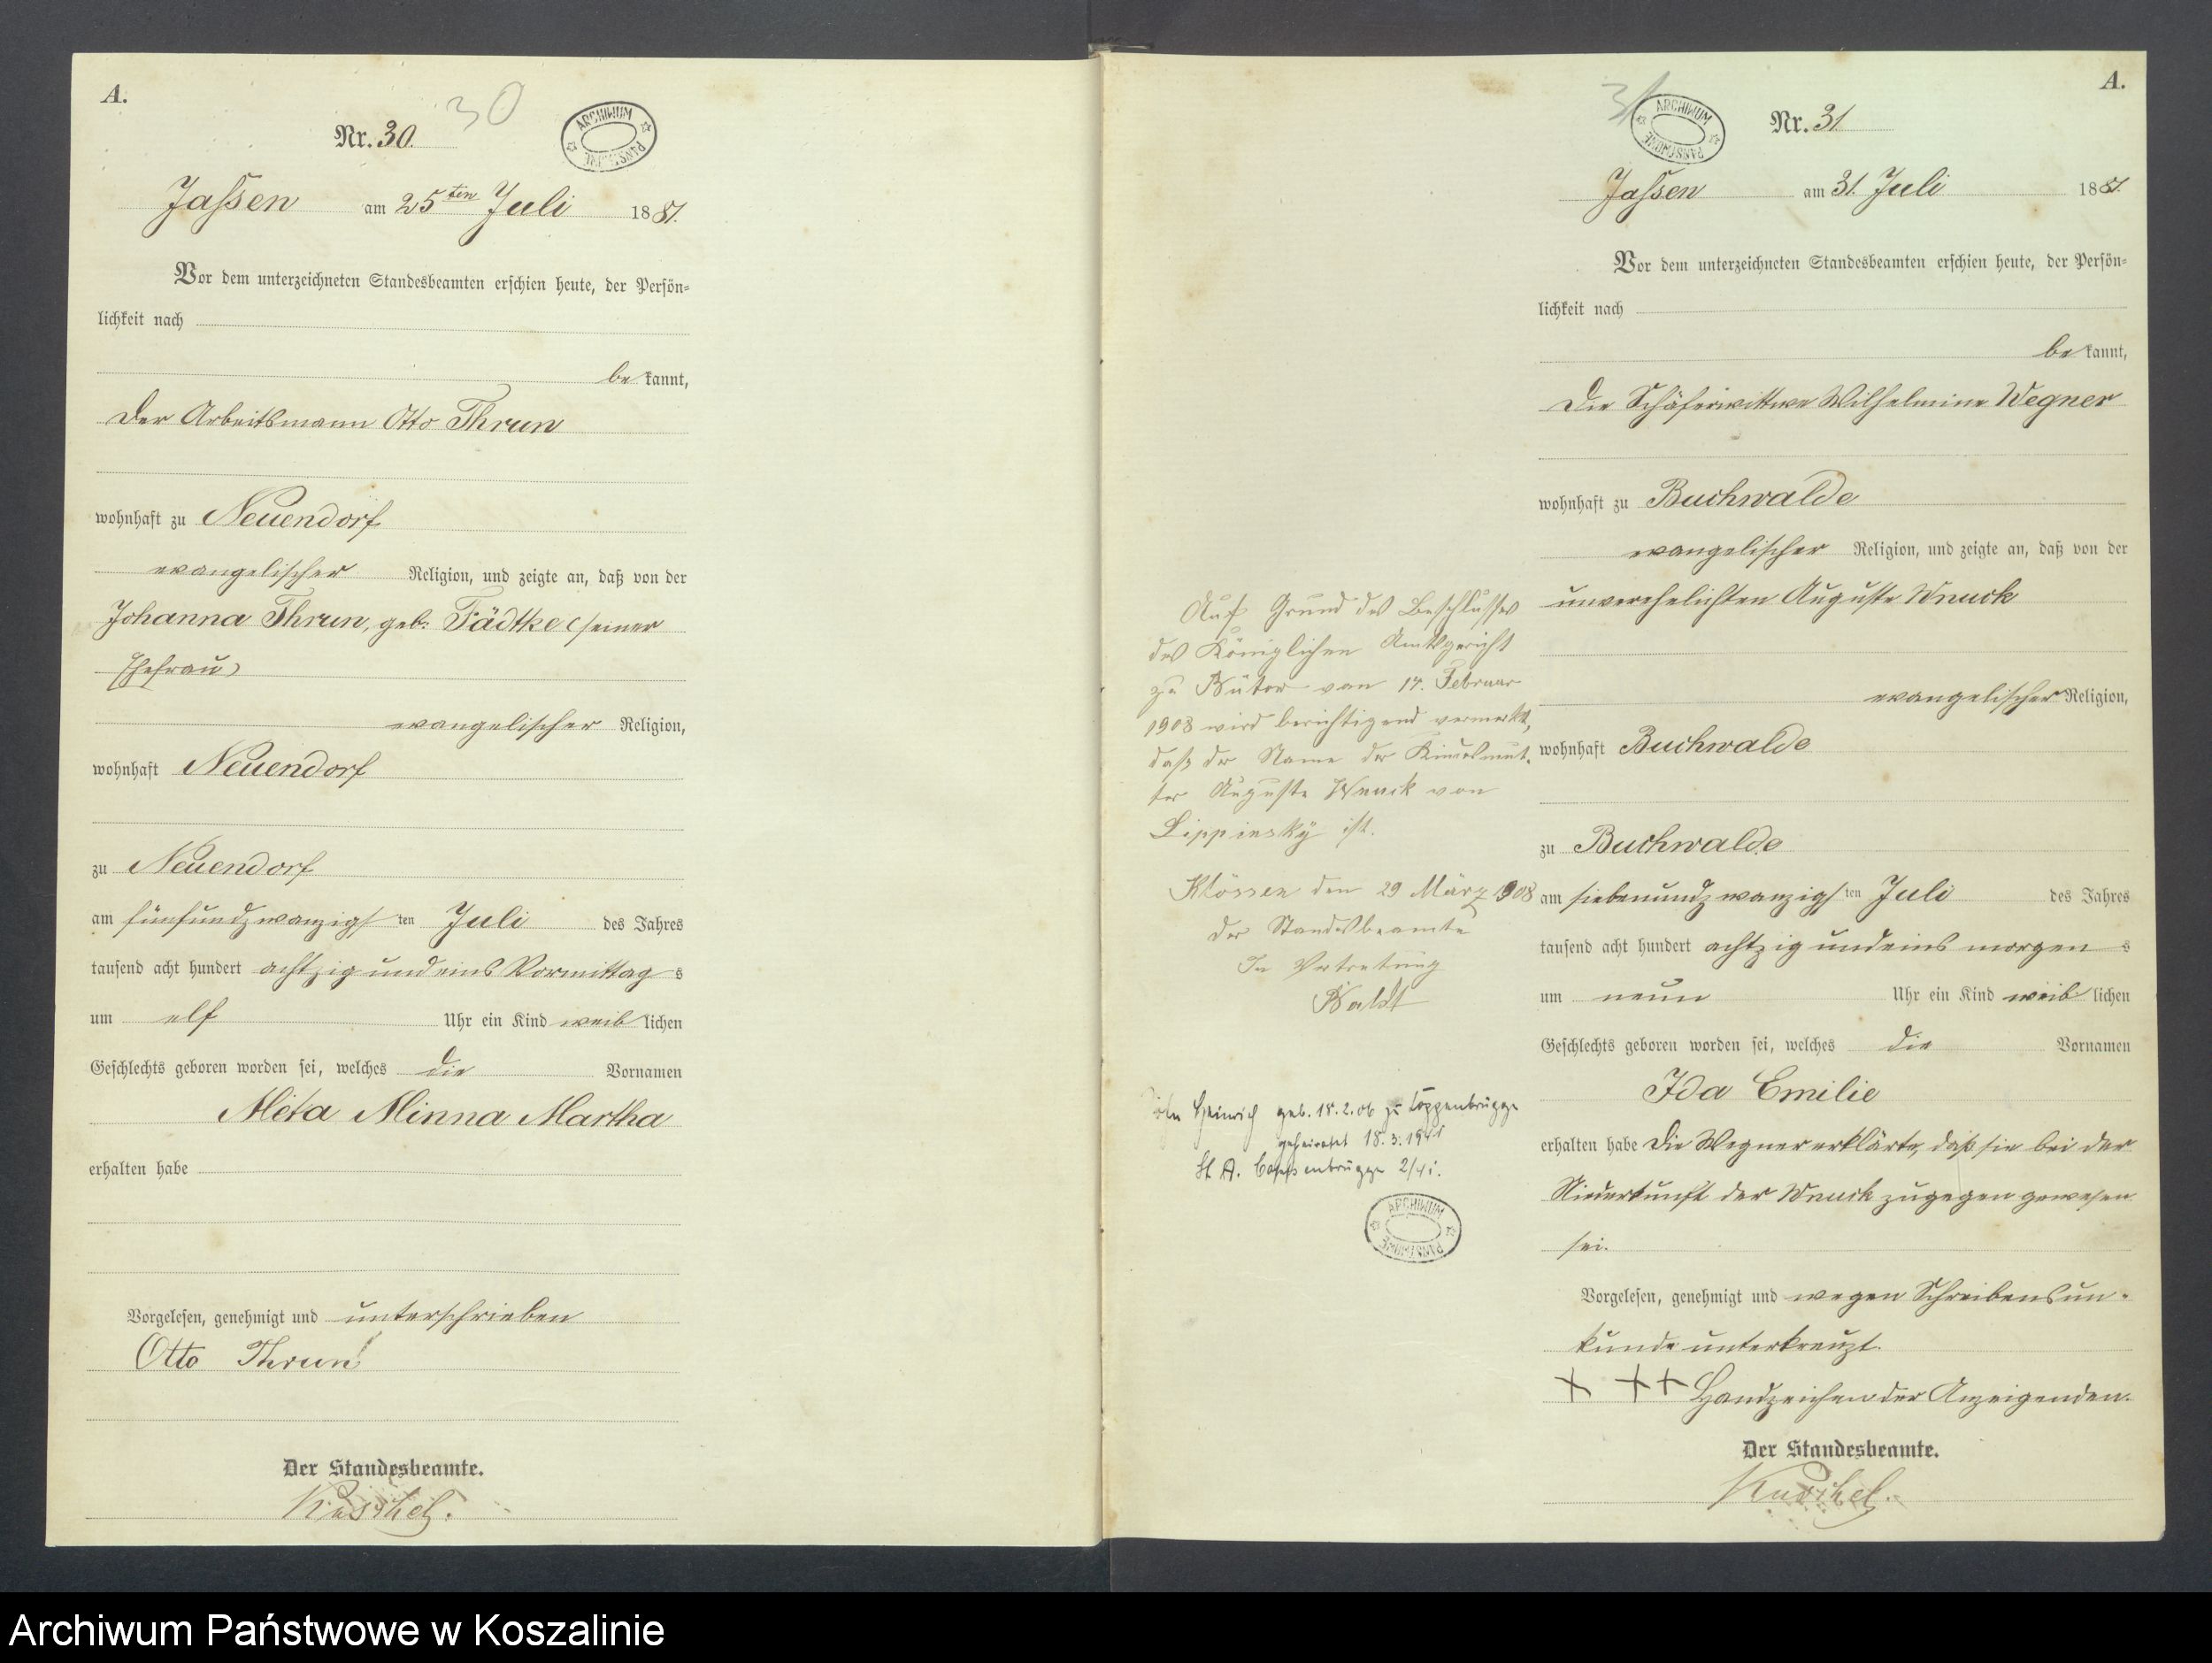 A.
30
Nr. 30.
ARCHIWUM PAŃSTWOWE
Jassen am 25ten Juli 1881.
Vor dem unterzeichneten Standesbeamten erschien heute, der Persön-
lichkeit nach
be kannt,
der Arbeitsmann Otto Thrun
wohnhaft zu Neuendorf
evangelischer Religion, und zeigte an, daß von der
Johanna Thrun, geb: Fädtke (seiner
Ehefrau)
evangelischer Religion,
wohnhaft Neuendorf
zu Neuendorf
am fünfundzwanzigsten Juli des Jahres
tausend acht hundert achtzig und eins Vormittag s
um elf Uhr ein Kind weib lichen
Geschlechts geboren worden sei, welches die Vornamen
Meta Minna Martha
erhalten habe
Vorgelesen, genehmigt und unterschrieben
Otto Thrun
Der Standesbeamte.
Kuschel.
A.
31
ARCHIWUM PAŃSTWOWE
Nr. 31
Jassen am 31. Juli 1881.
Vor dem unterzeichneten Standesbeamten erschien heute, der Persön-
lichkeit nach
be kannt,
die Schäferwittwe Wilhelmine Wegner
wohnhaft zu Buchwalde
evangelischer Religion, und zeigte an, daß von der
unverehelichten Auguste Wnuck
evangelischer Religion,
wohnhaft Buchwalde
zu Buchwalde
am siebenundzwanzigsten Juli des Jahres
tausend acht hundert achtzig und eins morgen s
um neun Uhr ein Kind weib lichen
Geschlechts geboren worden sei, welches die Vornamen
Ida Emilie
erhalten habe die Wegner erklärte, daß sie bei der
Niederkunft der Wnuck zugegen gewesen
sei.
Vorgelesen, genehmigt und wegen Schreibensun-
kunde unterkreuzt.
+ ++ Handzeichen der Anzeigenden.
Der Standesbeamte.
Kuschel.
Auf Grund des Beschlusses
des Königlichen Amtsgericht
zu Bütow vom 17. Februar
1908 wird berichtigend vermerkt,
daß der Name der Kindesmut-
ter Auguste Wnuck von
Lippinsky ist.
den 29 März 1908
Der Standesbeamte
In Vertretung
Heinrich geb. 18.2.06 zu Coppenbrügge
geheiratet 18.3.1941
St. A. Coppenbrügge 2/41.
ARCHIWUM PAŃSTWOWE
Archiwum Państwowe w Koszalinie